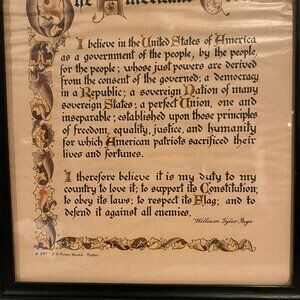 The American's Creed
I believe in the United States of America
as a government of the people, by the people,
for the people; whose just powers are derived
from the consent of the governed; a democracy
in a Republic; a sovereign Nation of many
sovereign States; a perfect Union, one and
inseparable; established upon those principles
of freedom, equality, justice, and humanity
for which American patriots sacrificed their
lives and fortunes.
I therefore believe it is my duty to my
country to love it; to support its Constitution;
to obey its laws; to respect its Flag; and to
defend it against all enemies.
William Tyler Page